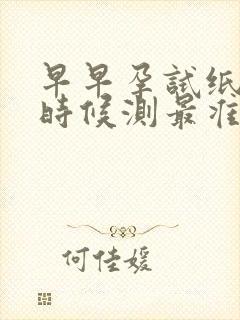 早早孕試纸
時候测最准
何佳媛